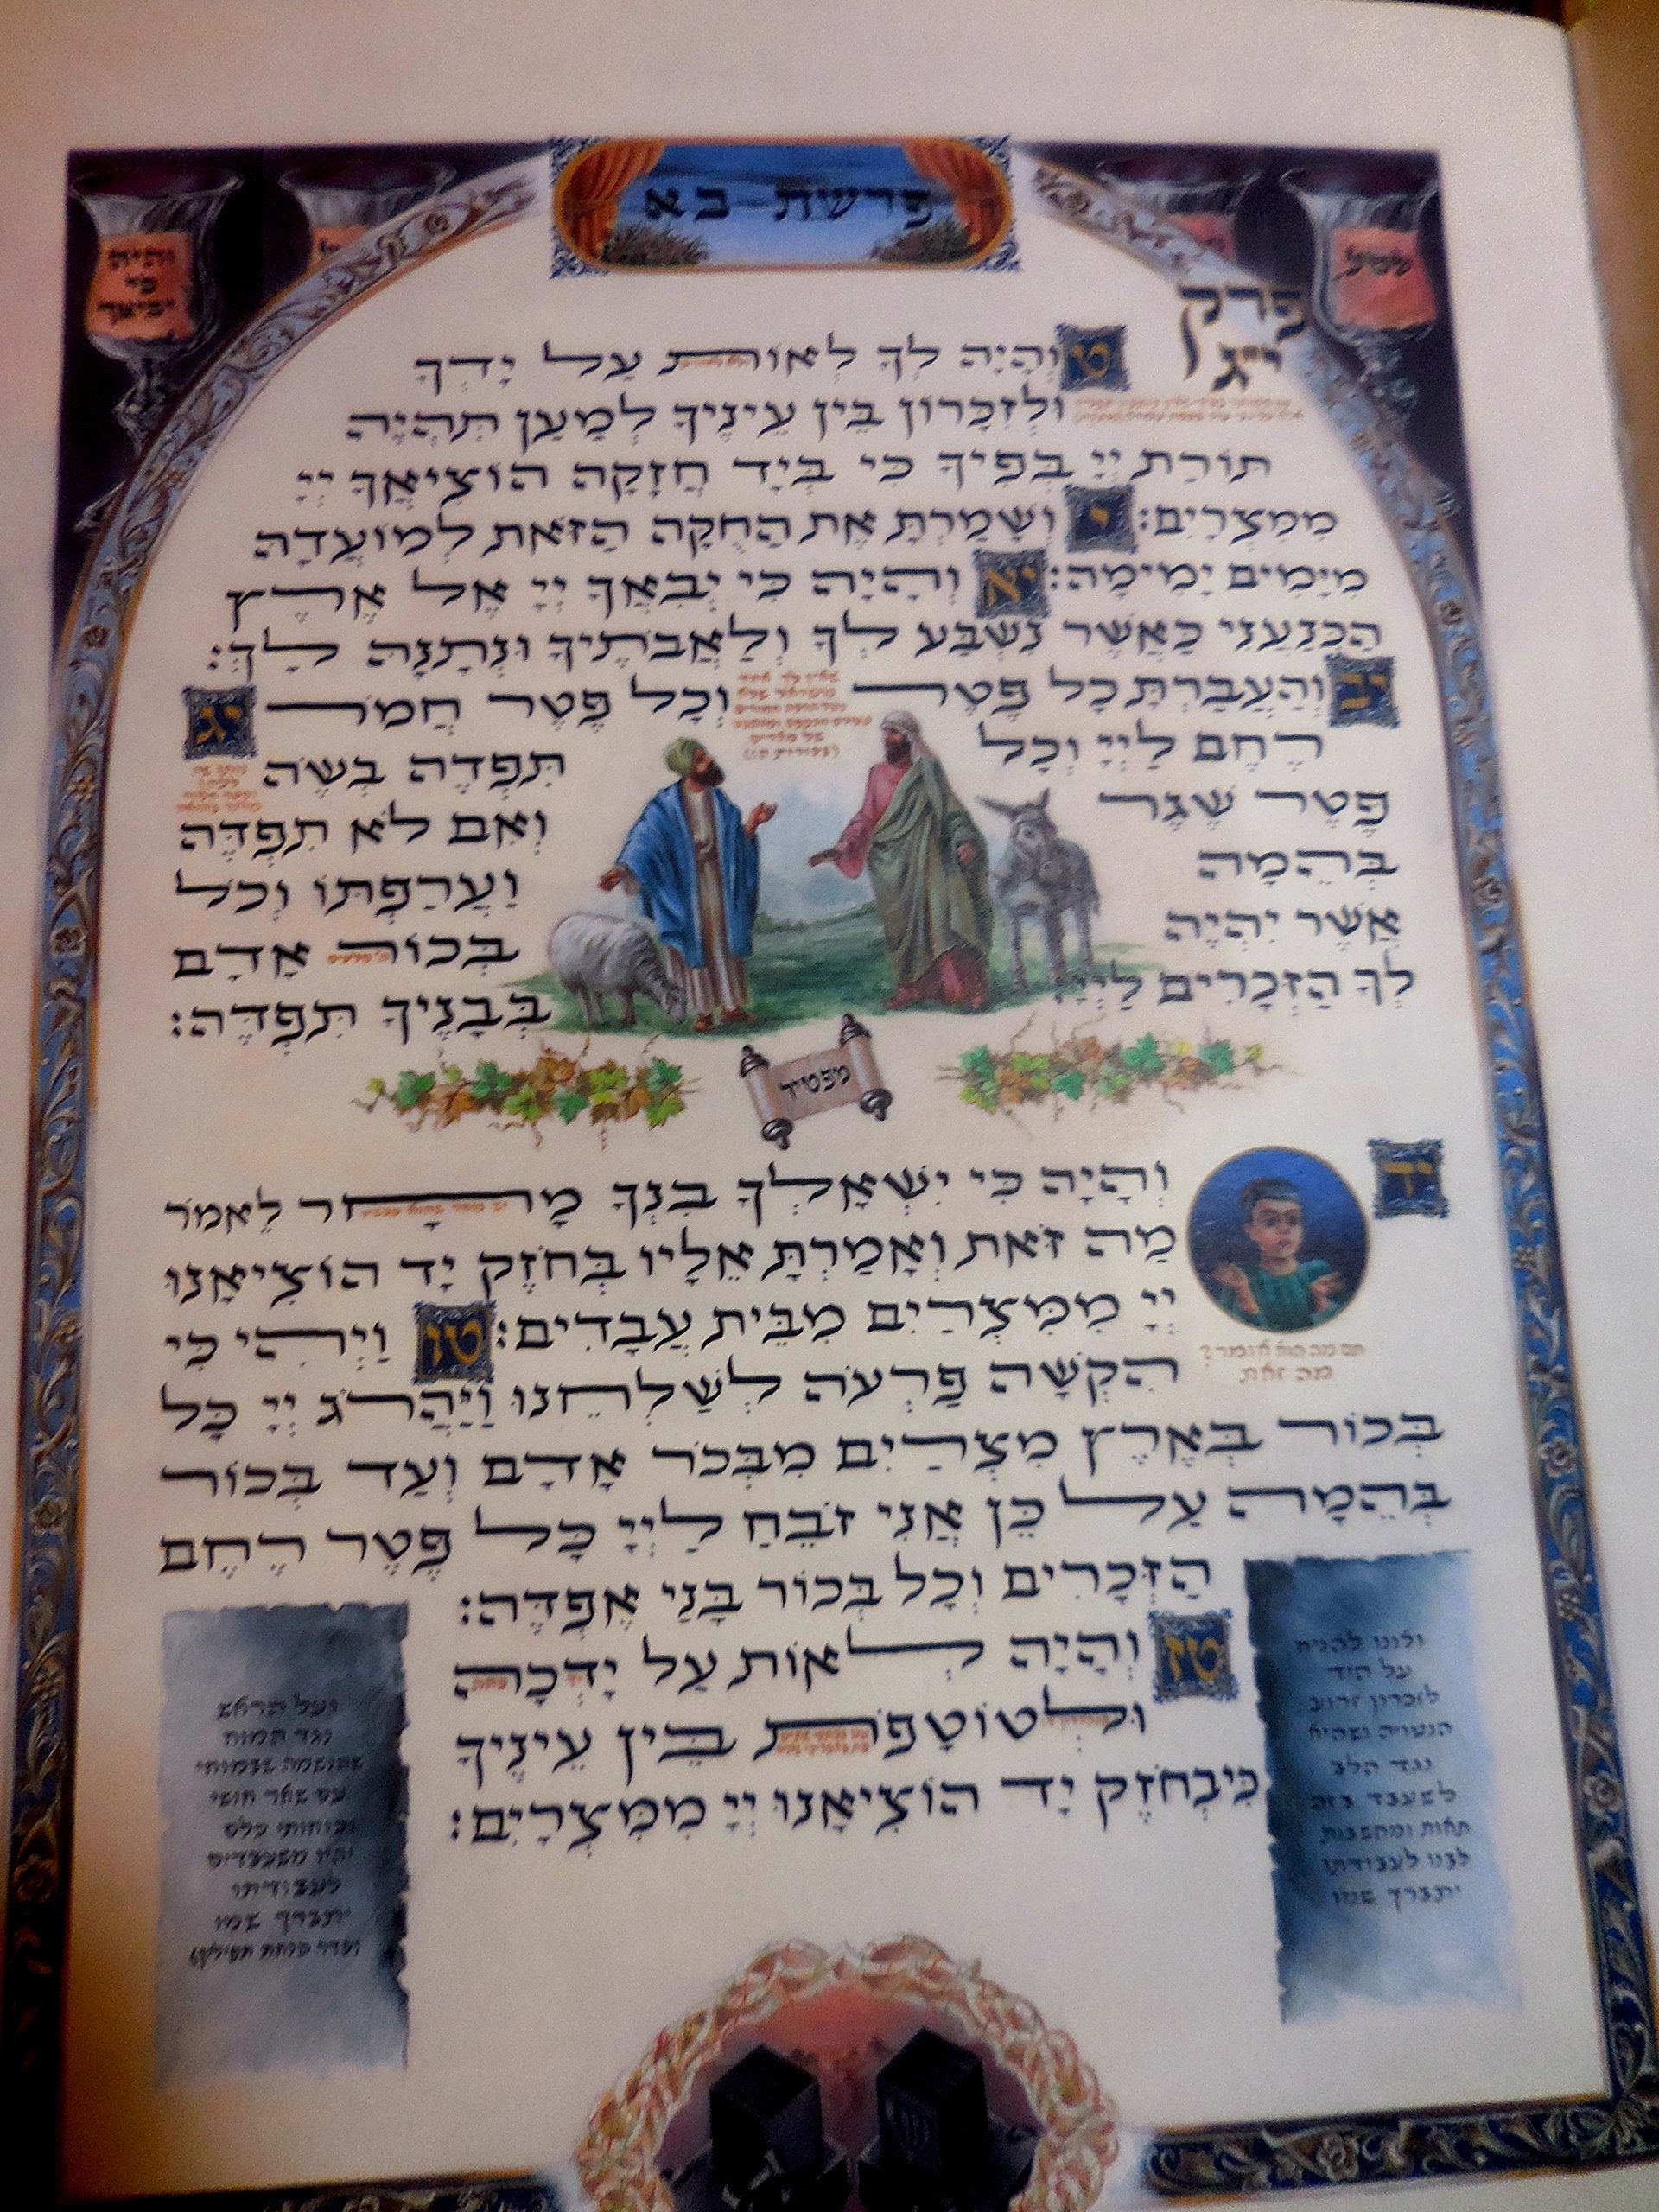 פרשת בא
פרק
י"ג
ט וְהָיָה לְךָ לְאוֹת עַל יָדְךָ
וּלְזִכָּרוֹן בֵּין עֵינֶיךָ לְמַעַן תִּהְיֶה
תּוֹרַת יְיָ בְּפִיךָ כִּי בְּיָד חֲזָקָה הוֹצִיאֲךָ יְיָ
מִמִּצְרָיִם: י וְשָׁמַרְתָּ אֶת הַחֻקָּה הַזֹּאת לְמוֹעֲדָהּ
מִיָּמִים יָמִימָה: יא וְהָיָה כִּי יְבִאֲךָ יְיָ אֶל אֶרֶץ
הַכְּנַעֲנִי כַּאֲשֶׁר נִשְׁבַּע לְךָ וְלַאֲבֹתֶיךָ וּנְתָנָהּ לָךְ:
יב וְהַעֲבַרְתָּ כָל פֶּטֶר
רֶחֶם לַיְיָ וְכָל
פֶּטֶר שֶׁגֶר
בְּהֵמָה
אֲשֶׁר יִהְיֶה
לְךָ הַזְּכָרִים לַיְיָ:
יג וְכָל פֶּטֶר חֲמֹר
תִּפְדֶּה בְשֶׂה
וְאִם לֹא תִפְדֶּה
וַעֲרַפְתּוֹ וְכֹל
בְּכוֹר אָדָם
בְּבָנֶיךָ תִּפְדֶּה:
מפטיר
יד וְהָיָה כִּי יִשְׁאָלְךָ בִנְךָ מָחָר לֵאמֹר
מַה זֹּאת וְאָמַרְתָּ אֵלָיו בְּחֹזֶק יָד הוֹצִיאָנוּ
יְיָ מִמִּצְרַיִם מִבֵּית עֲבָדִים: טו וַיְהִי כִּי
הִקְשָׁה פַרְעֹה לְשַׁלְּחֵנוּ וַיַּהֲרֹג יְיָ כָּל
בְּכוֹר בְּאֶרֶץ מִצְרַיִם מִבְּכֹר אָדָם וְעַד בְּכוֹר
בְּהֵמָה עַל כֵּן אֲנִי זֹבֵחַ לַיְיָ כָּל פֶּטֶר רֶחֶם
הַזְּכָרִים וְכָל בְּכוֹר בָּנַי אֶפְדֶּה:
טז וְהָיָה לְאוֹת עַל יָדְכָה
וּלְטוֹטָפֹת בֵּין עֵינֶיךָ
כִּי בְּחֹזֶק יָד הוֹצִיאָנוּ יְיָ מִמִּצְרָיִם:
תם מה הוא אומר?
מה זאת
וצונו להניח
על היד
לזכרון זרוע
הנטויה ושהיא
נגד הלב
לשעבד בזה
תאות ומחשבות
לבנו לעבודתו
יתברך שמו
ועל הראש
נגד המוח
שהנשמה שבמוחי
עם שאר חושי
וכוחותי כלם
יהיו משעבדים
לעבודתו
יתברך שמו